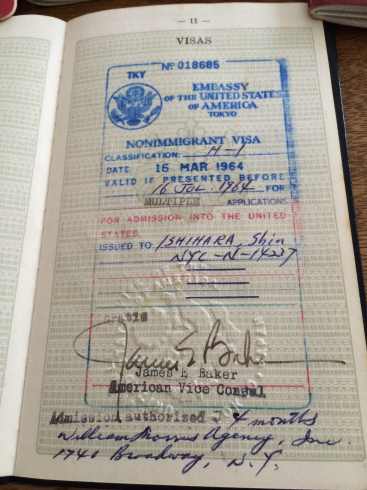 — 11 —
VISAS
TKY Nº 018685
EMBASSY
OF THE UNITED STATES
OF AMERICA
TOKYO
NONIMMIGRANT VISA
CLASSIFICATION: H-1
DATE 16 MAR 1964
VALID IF PRESENTED BEFORE
16 JUL 1964 FOR
MULTIPLE APPLICATIONS
FOR ADMISSION INTO THE UNITED
STATES.
ISSUED TO: ISHIHARA, Shin
NYC-N-14227
gratis
James E Baker
James E Baker
American Vice Consul
Admission authorized 4 months
William Morris Agency, Inc.
1740 Broadway, N.Y.